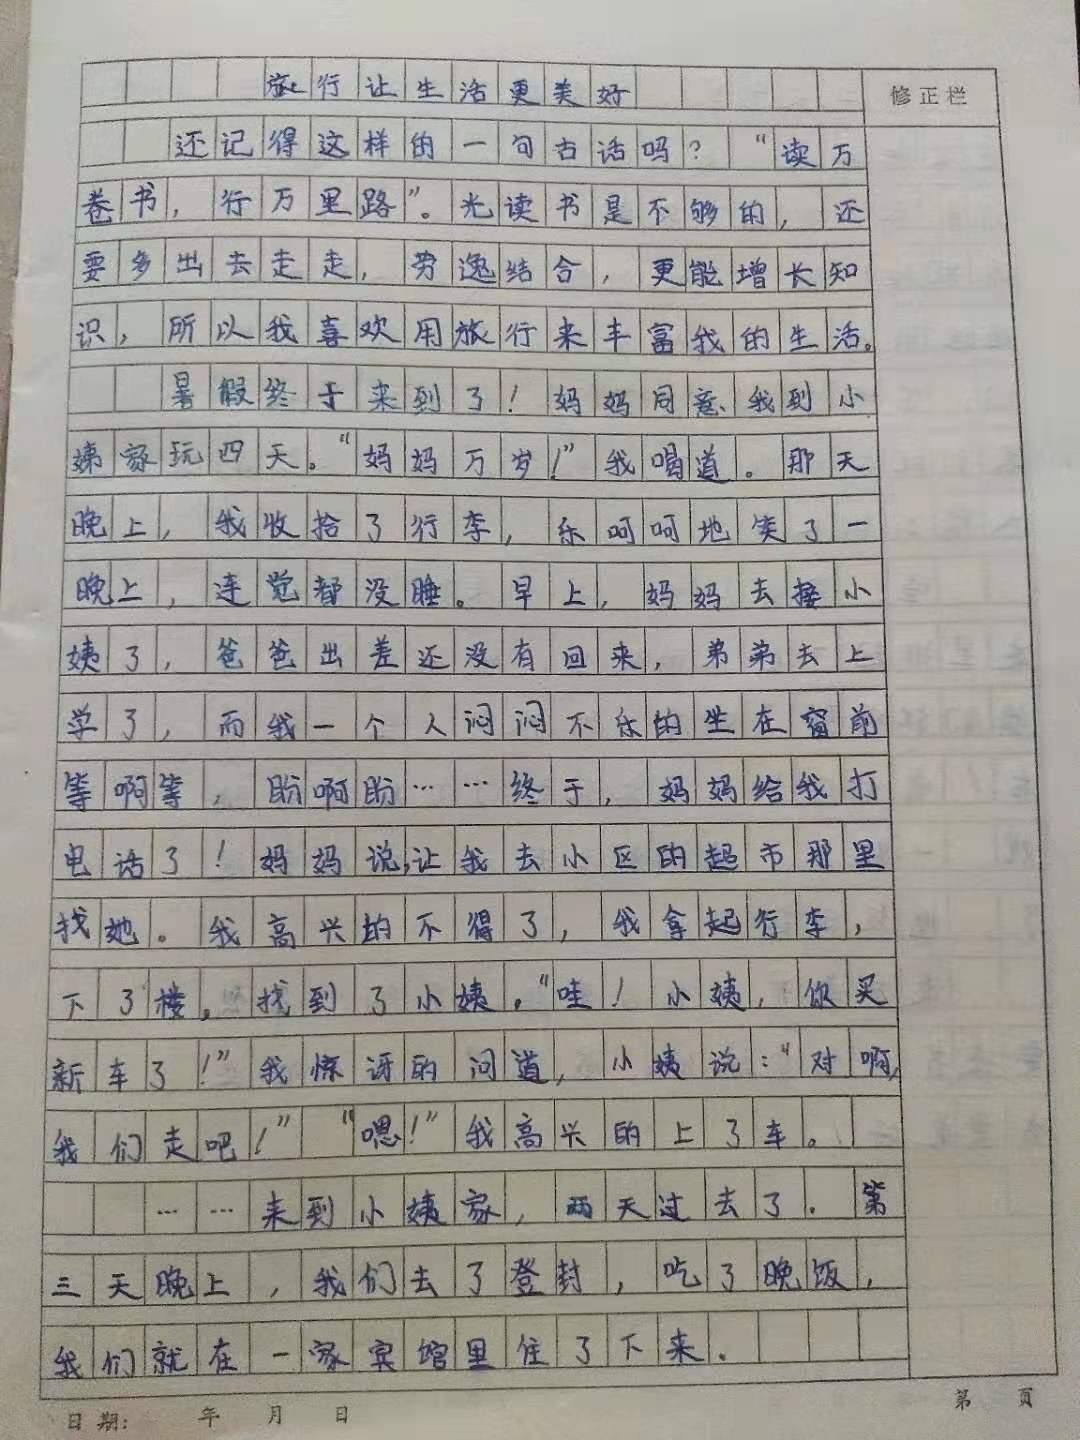 旅行让生活更美好
修正栏
还记得这样的一句古话吗？“读万
卷书，行万里路”。光读书是不够的，还
要多出去走走，劳逸结合，更能增长知
识，所以我喜欢用旅行来丰富我的生活。
暑假终于来到了！妈妈同意我到小
姨家玩四天。“妈妈万岁！”我喝道。那天
晚上，我收拾了行李，乐呵呵地笑了一
晚上，连觉都没睡。早上，妈妈去接小
姨了，爸爸出差还没有回来，弟弟去上
学了，而我一个人闷闷不乐的坐在窗前
等啊等，盼啊盼……终于，妈妈给我打
电话了！妈妈说，让我去小区的超市那里
找她。我高兴的不得了，我拿起行李，
下了楼。找到了小姨。“哇！小姨，你买
新车了！”我惊讶的问道，小姨说：“对啊，
我们走吧！”“嗯！”我高兴的上了车。
……来到小姨家，两天过去了．第
三天晚上，我们去了登封，吃了晚饭，
我们就在一家宾馆里住了下来．
日期： 年 月 日
第 页